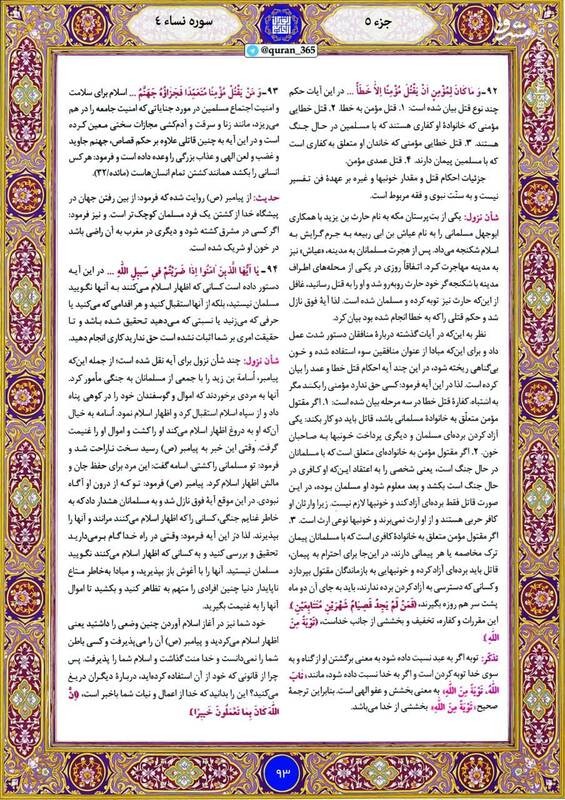 جزء ۵
سوره نساء ٤
@quran_365
۹۲- وَ مَا كَانَ لِمُؤْمِنٍ أَنْ يَقْتُلَ مُؤْمِنًا إِلَّا خَطَأً ... در این آیات حکم
چند نوع قتل بیان شده است: ۱. قتل مؤمن به خطا. ۲. قتل خطایی
مؤمنی که خانوادهٔ او کفاری هستند که با مسلمین در حال جنگ
هستند. ۳. قتل خطایی مؤمنی که خاندان او متعلق به کفاری است
که با مسلمین پیمان دارند. ۴. قتل عمدی مؤمن.
جزئیات احکام قتل و مقدار خونبها و غیره بر عهدهٔ فن تفسیر
نیست و به سنّت نبوی و فقه مربوط است.
شأن نزول: یکی از بت‌پرستان مکه به نام حارث بن یزید با همکاری
ابوجهل مسلمانی را به نام عیاش بن ابی ربیعه به جرم گرایش به
اسلام شکنجه می‌داد. پس از هجرت مسلمانان به مدینه، «عیاش» نیز
به مدینه مهاجرت کرد. اتفاقاً روزی در یکی از محله‌های اطراف
مدینه با شکنجه‌گر خود حارث روبه‌رو شد و او را به قتل رسانید، غافل
از این‌که حارث نیز توبه کرده و مسلمان شده است. لذا آیهٔ فوق نازل
شد و حکم قتلی را که به خطا انجام شده بود بیان کرد.
نظر به این‌که در آیات گذشته دربارهٔ منافقان دستور شدت عمل
داد و برای این‌که مبادا از عنوان منافقین سوء استفاده شده و خون
بی‌گناهی ریخته شود، در این چند آیه احکام قتل خطا و عمد را بیان
کرده است. لذا در این آیه فرمود: کسی حق ندارد مؤمنی را بکشد مگر
به اشتباه. کفارهٔ قتل خطا در سه مرحله بیان شده است: ۱. اگر مقتول
مؤمن متعلّق به خانوادهٔ مسلمانی باشد، قاتل باید دو کار بکند: یکی
آزاد کردن برده‌ای مسلمان و دیگری پرداخت خونبها به صاحبان
خون. ۲. اگر مقتول مؤمن به خانواده‌ای متعلق است که با مسلمانان
در حال جنگ است، یعنی شخصی را به اعتقاد این‌که او کافری در
حال جنگ است بکشد و بعد معلوم شود او مسلمان بوده، در این
صورت قاتل فقط برده‌ای آزاد کند و خونبها لازم نیست. زیرا وارثان او
کافر حربی هستند و از او ارث نمی‌برند و خونبها نوعی ارث است. ۳.
اگر مقتول مؤمن متعلق به خانوادهٔ کافری است که با مسلمانان پیمان
ترک مخاصمه یا هر پیمانی دارند، در این‌جا برای احترام به پیمان،
قاتل باید برده‌ای آزاد کرده و خونبهایی به بازماندگان مقتول بپردازد
و کسانی که دسترسی به آزاد کردن برده ندارند، باید به جای آن دو ماه
پشت سر هم روزه بگیرند، (فَمَنْ لَمْ يَجِدْ فَصِيَامُ شَهْرَيْنِ مُتَتَابِعَيْنِ).
این مقررات و کفاره، تخفیف و بخششی از جانب خداست، (تَوْبَةً مِنَ
اللَّهِ)
تذکّر: توبه اگر به عبد نسبت داده شود به معنی برگشتن او از گناه و به
سوی خدا توبه کردن است و اگر به خدا نسبت داده شود، مانند «تَابَ
اللَّهُ، تَوْبَةً مِنَ اللَّهِ» به معنی بخشش و عفو الهی است. بنابراین ترجمهٔ
صحیح «تَوْبَةً مِنَ اللَّهِ» بخششی از خدا می‌باشد.
۹۳- وَ مَنْ يَقْتُلْ مُؤْمِنًا مُتَعَمِّدًا فَجَزَاؤُهُ جَهَنَّمُ ... اسلام برای سلامت
و امنیت اجتماع مسلمین در مورد جنایاتی که امنیت جامعه را در هم
می‌ریزد، مانند زنا و سرقت و آدم‌کشی مجازات سختی معین کرده
است و در این آیه به چنین قاتلی علاوه بر حکم قصاص، جهنم جاوید
و غضب و لعن الهی و عذاب بزرگی را وعده داده است و فرمود: هر کس
انسانی را بکشد همانند کشتن تمام انسان‌هاست (مائده/۳۲).
حدیث: از پیامبر (ص) روایت شده که فرمود: از بین رفتن جهان در
پیشگاه خدا از کشتن یک فرد مسلمان کوچک‌تر است. و نیز فرمود:
اگر کسی در مشرق کشته شود و دیگری در مغرب به آن راضی باشد
در خون او شریک شده است.
۹۴- يَا أَيُّهَا الَّذِينَ آمَنُوا إِذَا ضَرَبْتُمْ فِي سَبِيلِ اللَّهِ ... در این آیه
دستور داده است کسانی که اظهار اسلام می‌کنند به آنها نگویید
مسلمان نیستید، بلکه از آنها استقبال کنید و هر اقدامی که می‌کنید یا
حرفی که می‌زنید یا نسبتی که می‌دهید تحقیق شده باشد و تا
حقیقت امری بر شما اثبات نشده است حق ندارید کاری انجام دهید.
شأن نزول: چند شأن نزول برای آیه نقل شده است؛ از جمله این‌که
پیامبر، اُسامة بن زید را با جمعی از مسلمانان به جنگی مأمور کرد.
آنها به مردی برخوردند که اموال و گوسفندان خود را در کوهی پناه
داد و از سپاه اسلام استقبال کرد و اظهار اسلام نمود. اُسامه به خیال
آن‌که او به دروغ اظهار اسلام می‌کند او را کشت و اموال او را غنیمت
گرفت. وقتی این خبر به پیامبر (ص) رسید سخت ناراحت شد و
فرمود: تو مسلمانی را کشتی. اسامه گفت: این مرد برای حفظ جان و
مالش اظهار اسلام کرد. پیامبر (ص) فرمود: تو که از درون او آگاه
نبودی. در این موقع آیهٔ فوق نازل شد و به مسلمانان هشدار داد که به
خاطر غنایم جنگی، کسانی را که اظهار اسلام می‌کنند مرانند و آنها را
بپذیرند. لذا در این آیه فرمود: وقتی در راه خدا گام برمی‌دارید
تحقیق و بررسی کنید و به کسانی که اظهار اسلام می‌کنند نگویید
مسلمان نیستید. آنها را با آغوش باز بپذیرید، و مبادا به‌خاطر متاع
ناپایدار دنیا چنین افرادی را متهم به تظاهر کنید و بکشید تا اموال
آنها را به غنیمت بگیرید.
خود شما نیز در آغاز اسلام آوردن چنین وضعی را داشتید یعنی
اظهار اسلام می‌کردید و پیامبر (ص) آن را می‌پذیرفت و کسی باطن
شما را نمی‌دانست و خدا منت گذاشت و اسلام شما را پذیرفت. پس
چرا از قانونی که خود از آن استفاده کرده‌اید، دربارهٔ دیگران دریغ
می‌کنید؟ این را بدانید که خدا از اعمال و نیات شما باخبر است، (إِنَّ
اللَّهَ كَانَ بِمَا تَعْمَلُونَ خَبِيرًا).
۹۳